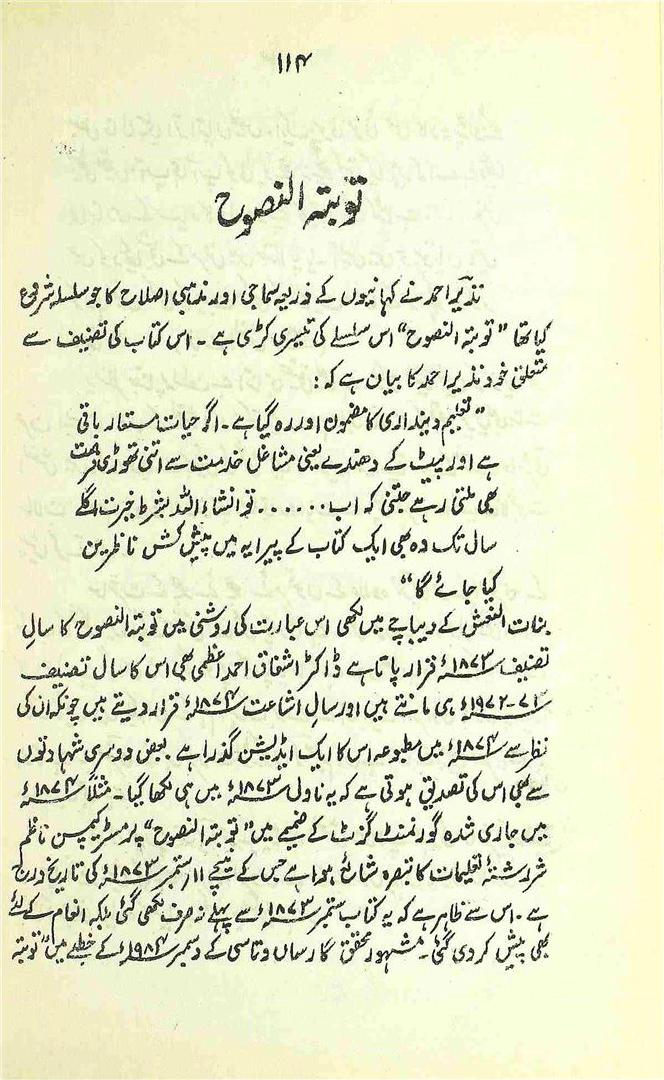 ۱۱۴
توبتہ النصوح
نذیر احمد نے کہانیوں کے ذریعہ سماجی اور مذہبی اصلاح کا جو سلسلہ شروع
کیا تھا "توبتہ النصوح" اس سلسلے کی تیسری کڑی ہے۔ اس کتاب کی تصنیف سے
متعلق خود نذیر احمد کا بیان ہے کہ:
"تعلیم دینداری کا مضمون اور رہ گیا ہے۔ اگر حیات مستعار باقی
ہے اور پیٹ کے دھندے یعنی مشاغل خدمت سے اتنی تھوڑی فرصت
بھی ملتی رہے جتنی کہ اب ...... تو انشاء اللہ بشرط خیریت اگلے
سال تک وہ بھی ایک کتاب کے پیرایہ میں پیش کش ناظرین
کیا جائے گا"
بنات النعش کے دیباچے میں لکھی اس عبارت کی روشنی میں توبتہ النصوح کا سالِ
تصنیف ۱۸۷۳ء قرار پاتا ہے ڈاکٹر اشفاق احمد اعظمی بھی اس کا سال تصنیف
۷۳-۱۹۷۲ء ہی مانتے ہیں اور سالِ اشاعت ۱۸۷۴ء قرار دیتے ہیں چونکہ ان کی
نظر سے ۱۸۷۴ء میں مطبوعہ اس کا ایک ایڈیشن گذرا ہے۔ بعض دوسری شہادتوں
سے بھی اس کی تصدیق ہوتی ہے کہ یہ ناول ۱۸۷۳ء میں ہی لکھا گیا۔ مثلاً ۱۸۷۴ء
میں جاری شدہ گورنمنٹ گزٹ کے ضمیمے میں "توبتہ النصوح" پر مسٹر کیمپسن ناظم
سررشتۂ تعلیمات کا تبصرہ شائع ہوا ہے جس کے نیچے ۱۱ ستمبر ۱۸۷۳ء کی تاریخ درج
ہے۔ اس سے ظاہر ہے کہ یہ کتاب ستمبر ۱۸۷۳ء سے پہلے نہ صرف لکھی گئی بلکہ انعام کے لئے
بھی پیش کر دی گئی۔ مشہور محقق گارساں دتاسی کے دسمبر ۱۹۸۴ء کے خطبے میں "توبتہ